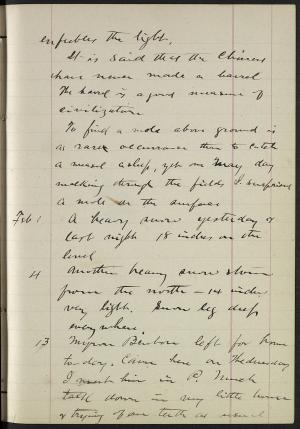 enfeebles the light.
It is said that the Chinese
have never made a barrel
The barrel is a good measure of
civilization
To find a mole above ground is
as rare occurrence than to catch
a weasel asleep, yet on May day
walking through the fields I surprised
a mole on the surface
Feb 1 A heavy snow yesterday &
last night 18 inches on the
level
4 Another heavy snow storm
from the north – 14 inches
very light. Snow leg deep
everywhere.
13 Myron Benton left for home
to-day. Came here on Wednesday
I met him in P. Much
talk down in my little house
& trying of our teeth as usual